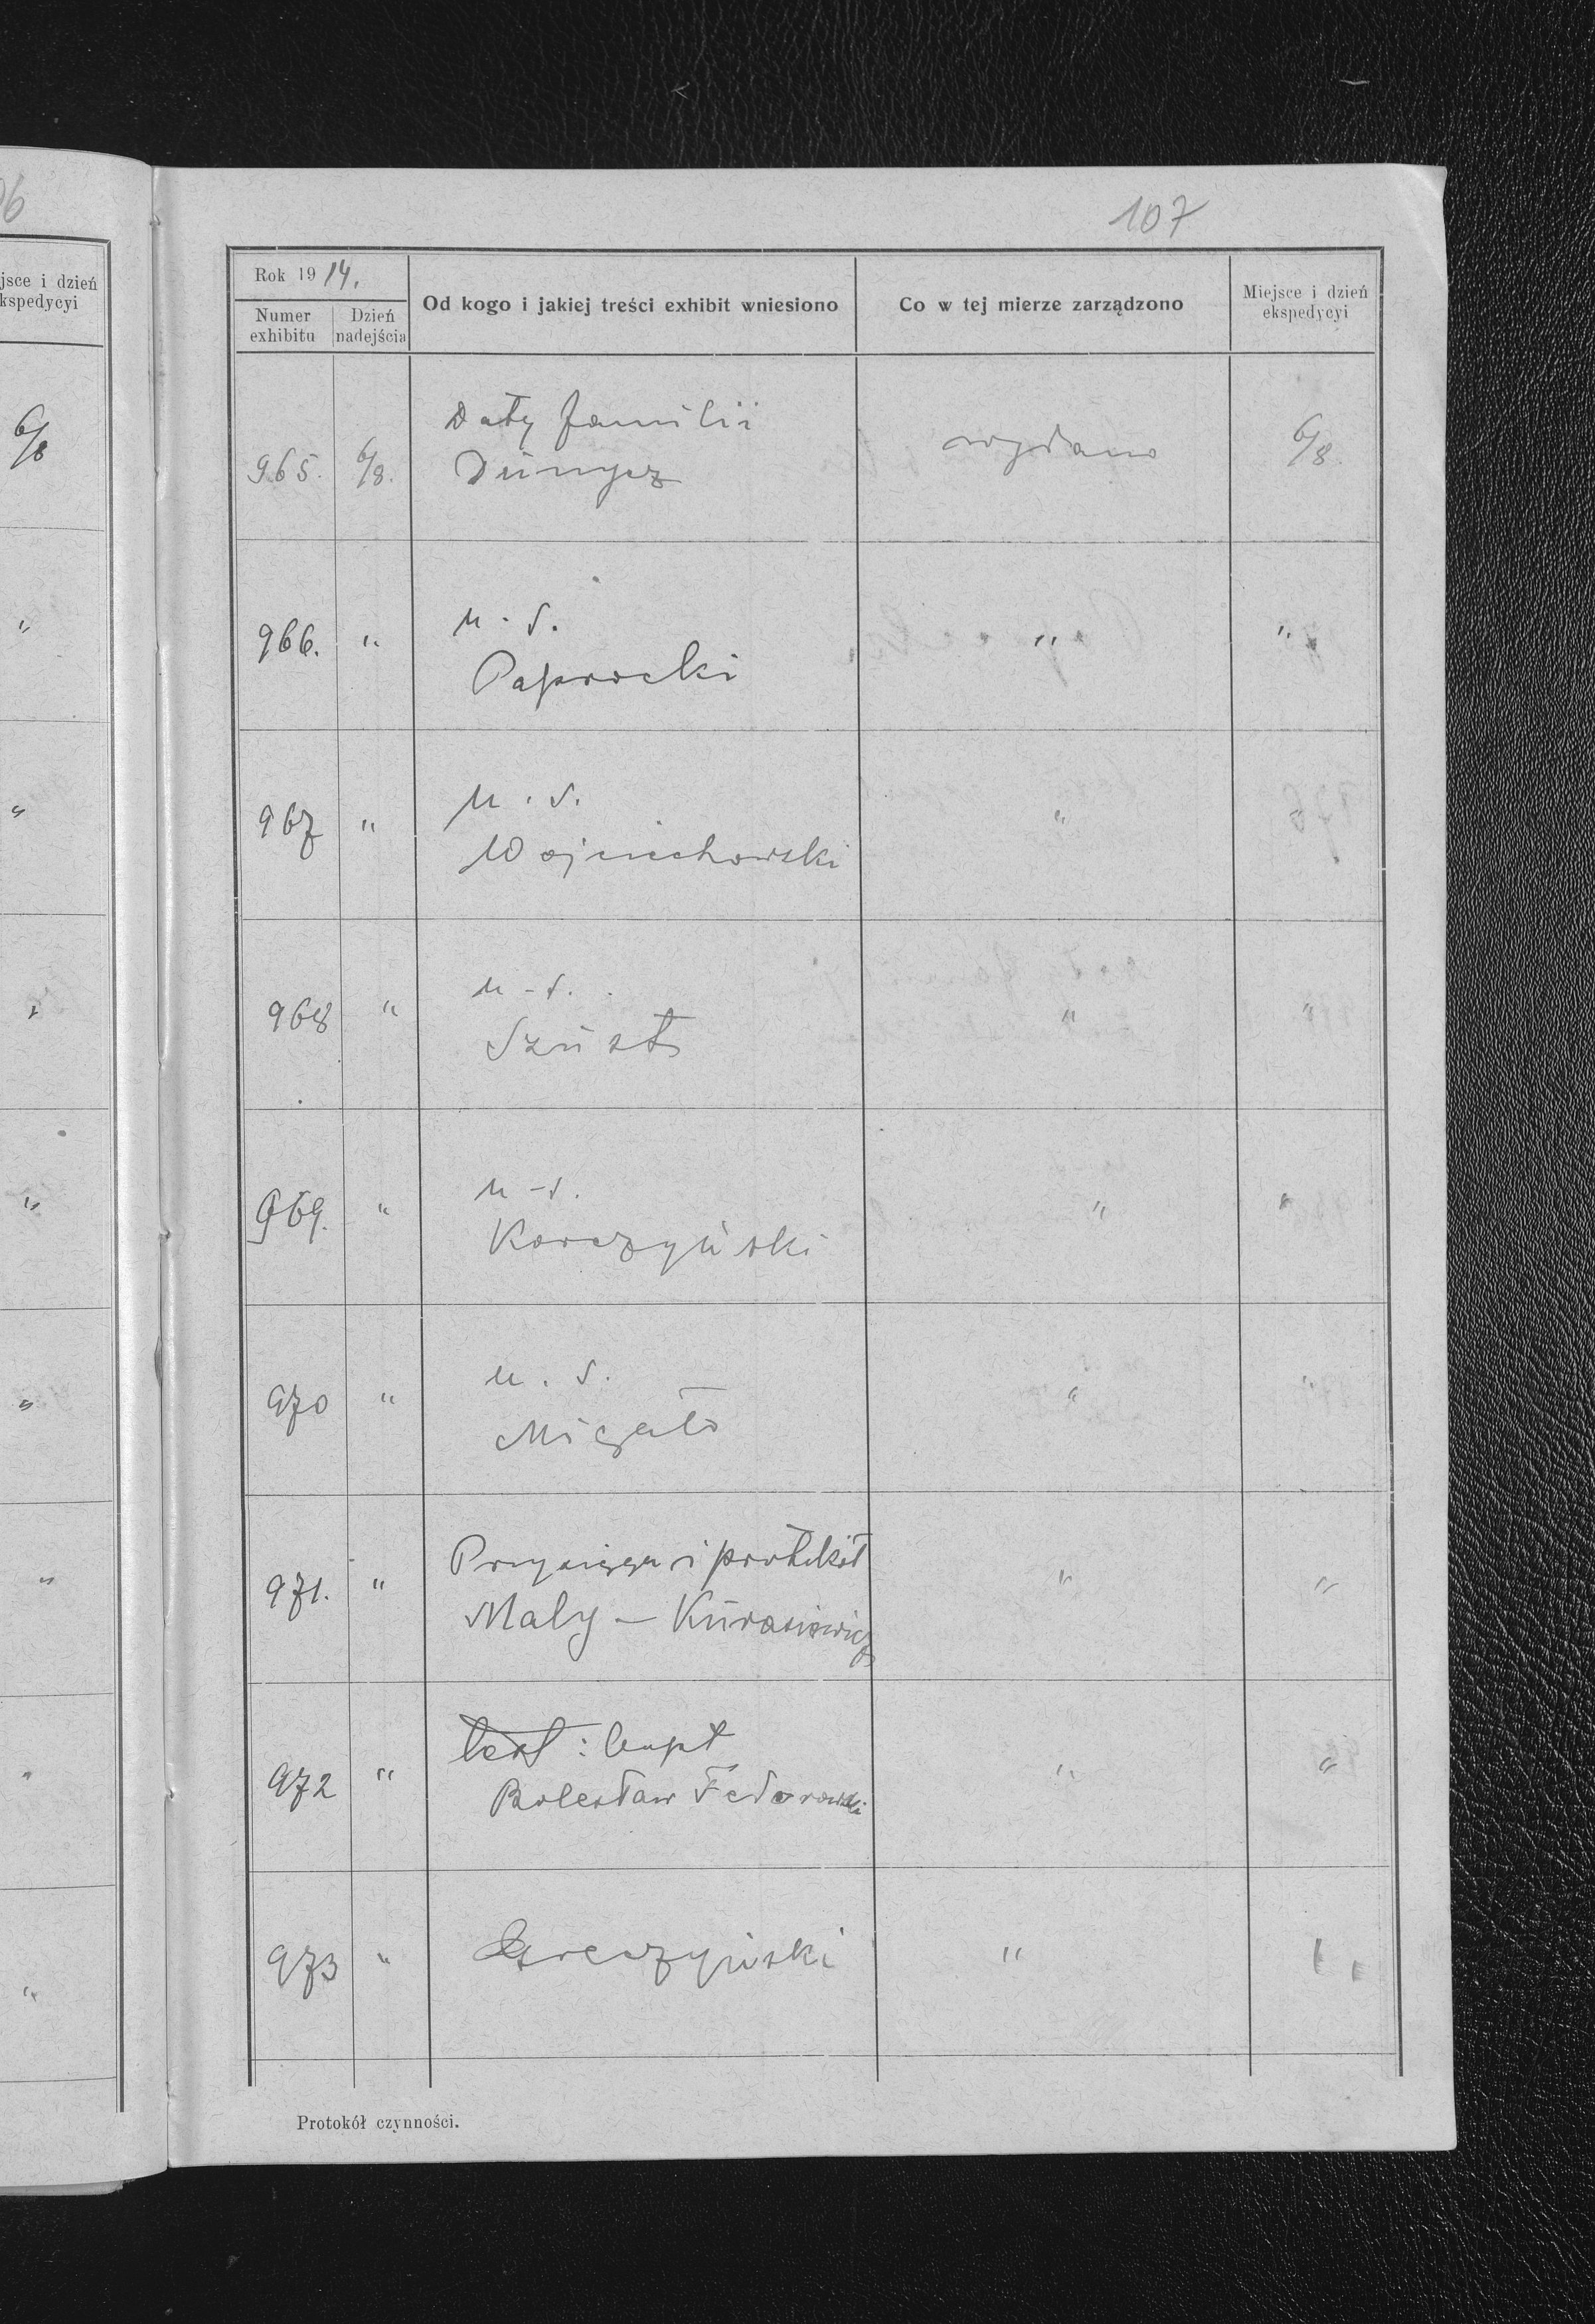 06
jsce i dzień
kspedycyi
6/8
"
"
"
"
"
"
"
"
107
Rok 1914.
Numer exhibitu
Dzień nadejścia
Od kogo i jakiej treści exhibit wniesiono
Co w tej mierze zarządzono
Miejsce i dzień ekspedycyi
965. 6/8. Daty familii wydano 6/8.
Dunycz
966. " u. s. " "
Paprocki
967 " u. s. " "
Wojciechowski
968 " u-s. " "
Szust
969. " u-s. " "
Korczyński
970 " u. s. " "
Migało
971. " Przysięga i protokół " "
Maly - Kurasiewicz
972 " test: Cupt " "
Bolesław Fedorowski
973 " Greczyński " "
Protokół czynności.